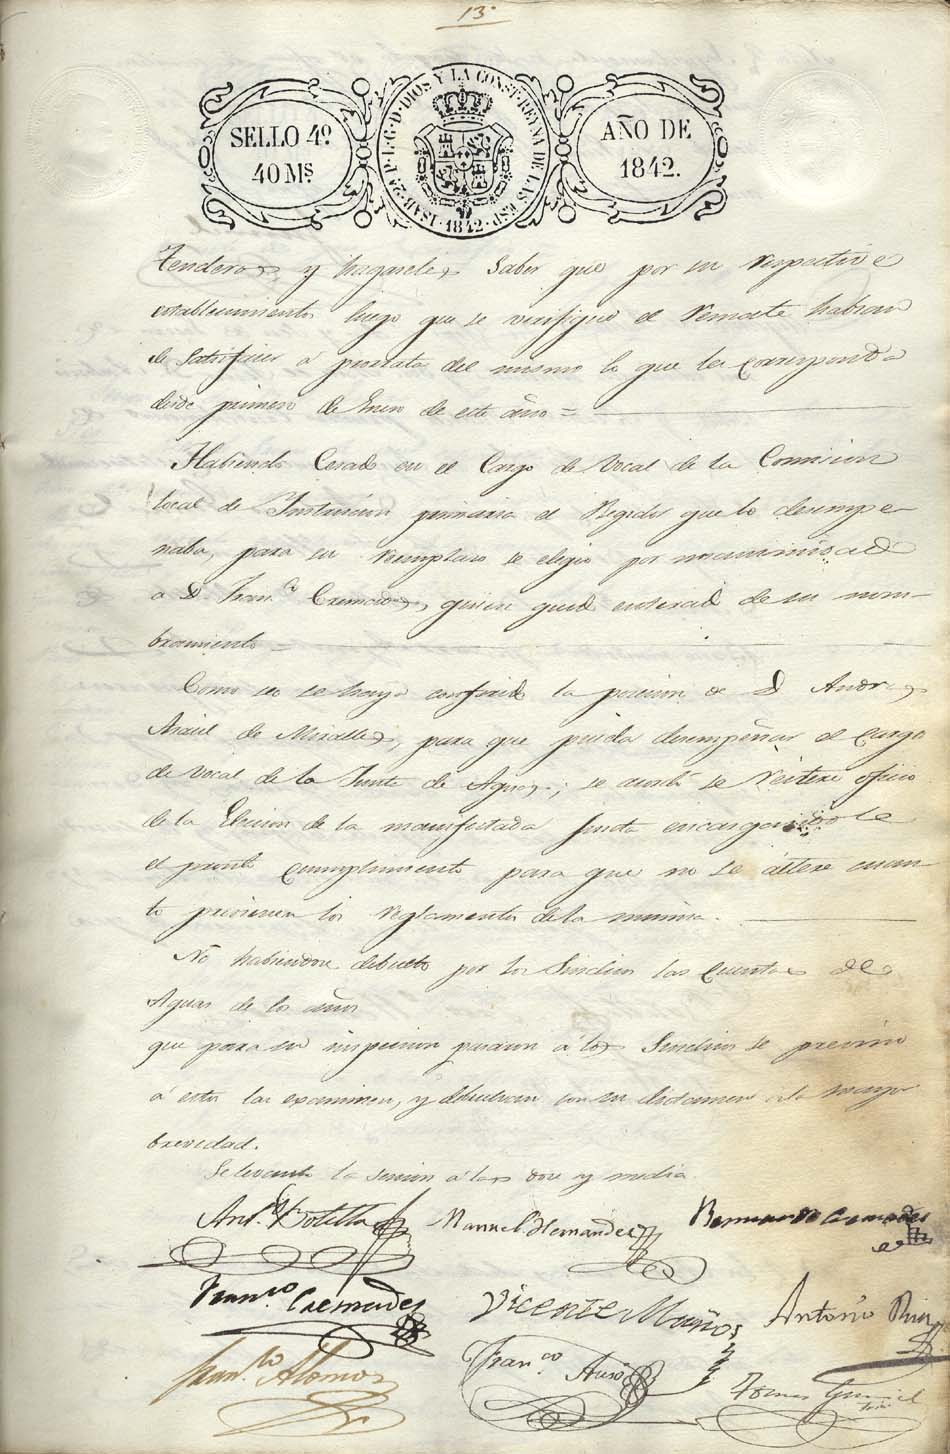 13.
SELLO 4º.
40 Ms.
ISAB. 2ª. P. L. G. D. DIOS Y LA CONST. REYNA DE LAS ESP. 1842.
AÑO DE
1842.
tenderos y hagaseles saber que por su respective
establecimiento luego que se verifique el remate habran
de satisfacer a prorrata del mismo lo que les corresponda
desde primero de Enero de este año =
Habiendo Cesado en el Cargo de Vocal de la Comision
local de Instruccion primaria el Regidor que lo desempe-
naba, para su reemplazo se eligio por unanimidad
a D. Franco. Cremades, quien quedó enterado de su nom-
bramiento =
Como no se haya conferido la posesion de D Andres
de Miralles, para que pueda desempeñar el cargo
de Vocal de la Junta de Aguas; se acordó se reitere oficio
de la Eleccion de la manifestada Junta encargandole
el pronto cumplimiento para que no se altere cuan-
to previenen los reglamentos de la misma.
No habiendose debuelto por los Sindicos las Cuentas de
Aguas de los años
que para su inspeccion pasaron á los Sindicos se previno
á estos las examinen, y debuelvan con su dictamen a la mayor
brevedad.
Se levantó la sesion a las doce y media
Anto. Botella
Manuel Hernandez
Bernardo Cremades
Franco. Cremades
Vicente Muños
Antonio
Franco. Alonso
Franco.
Tomas